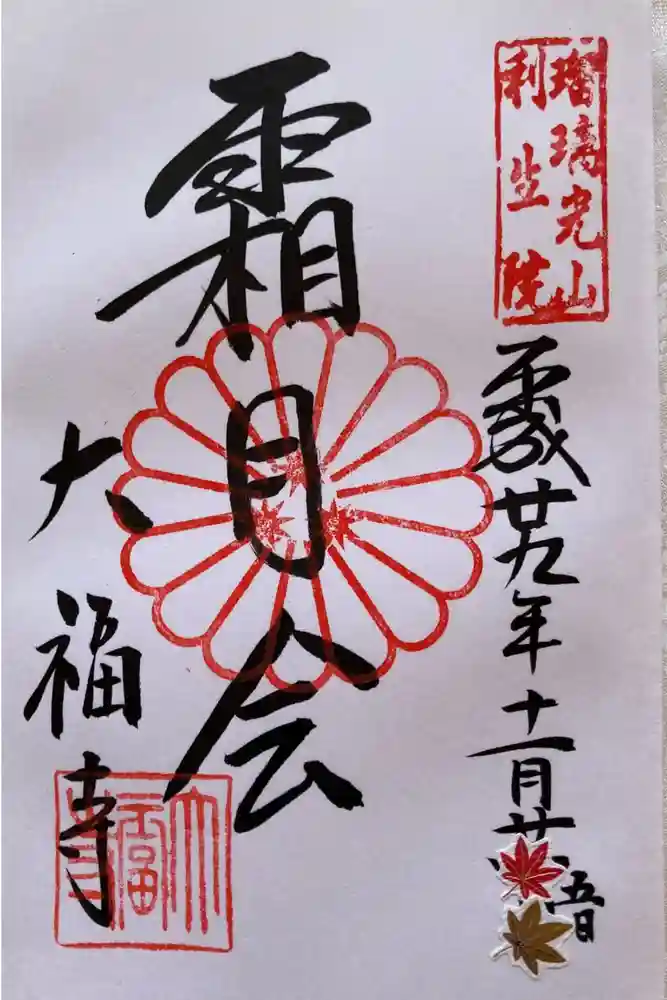 瑠璃光山
利生院
平成廿九年十一月廿五日
霜月会
大福寺
大福寺